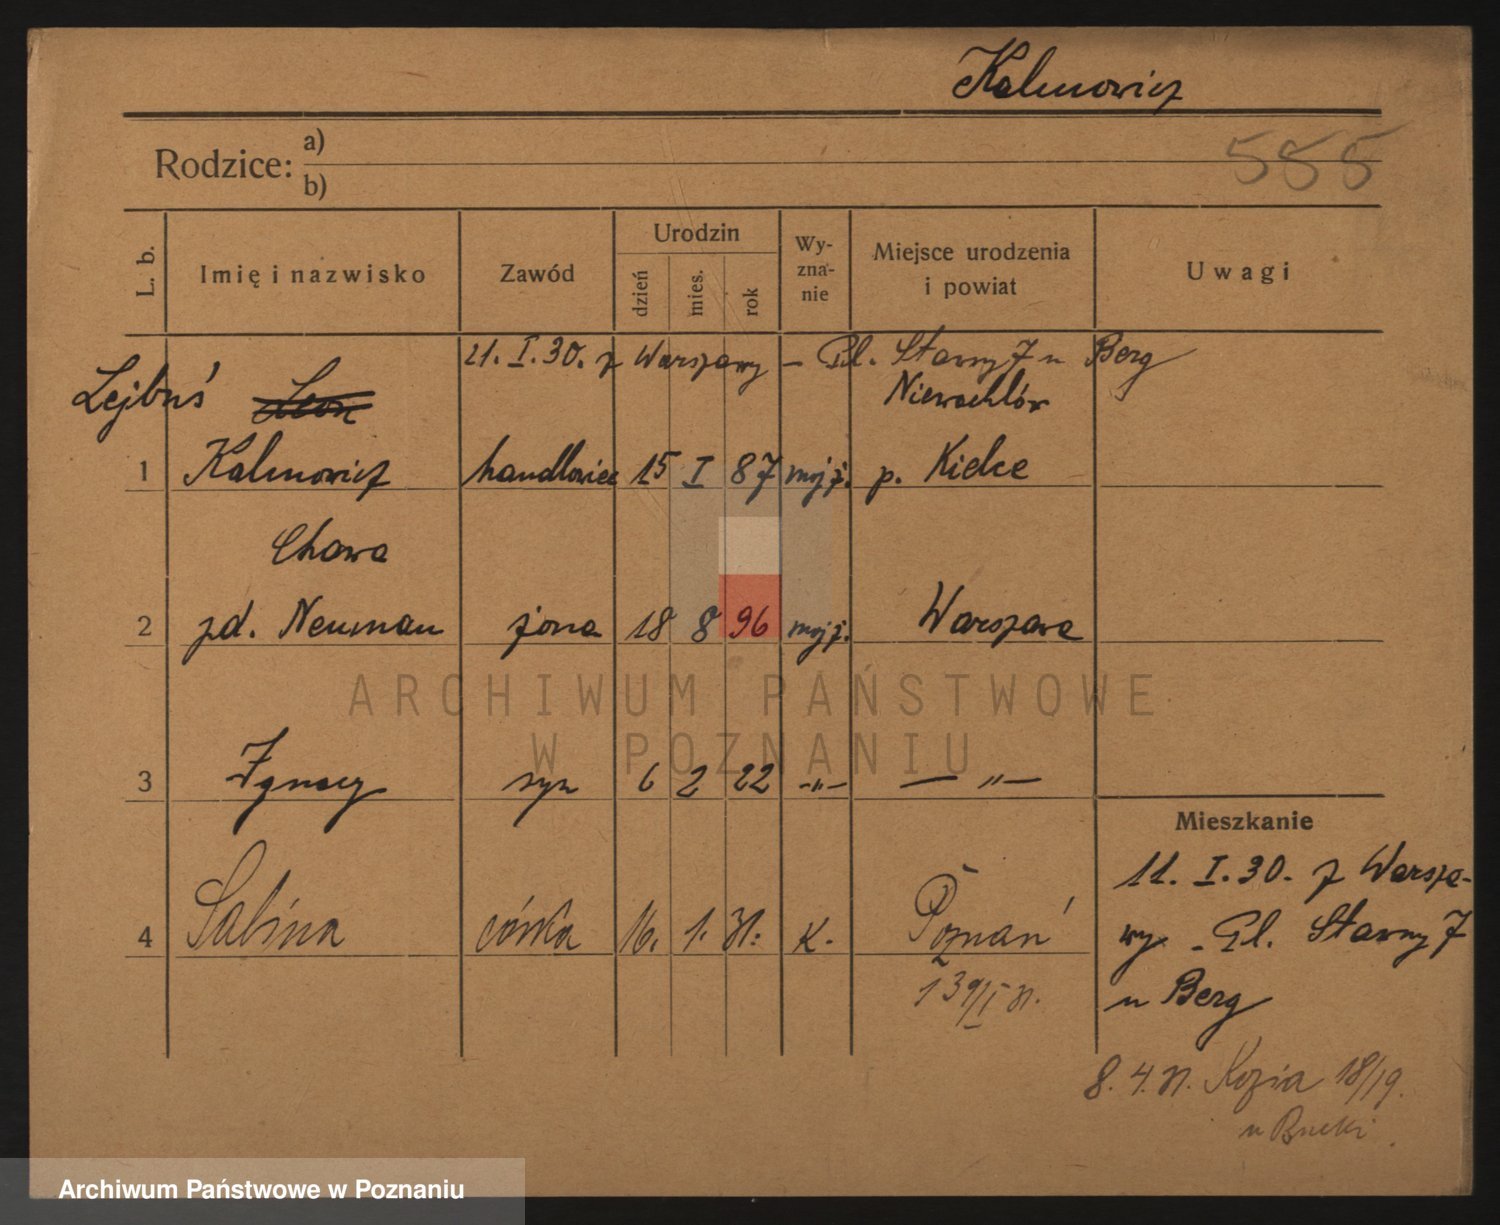 Kalmowicz
555
Rodzice: a)
b)
L. b.
Imię i nazwisko
Zawód
Urodzin
dzień
mies.
rok
Wy-
zna-
nie
Miejsce urodzenia
i powiat
Uwagi
21. I. 30. z Warszawy – Pl. Sławny 7 u Berg
Lejbuś Leon Niewachlów
1 Kalmowicz handlowiec 15 I 87 mojż. p. Kielce
Chawa
2 zd. Neuman żona 18 8 96 mojż. Warszawa
ARCHIWUM PAŃSTWOWE
W POZNANIU
3 Ignacy syn 6 2 22 -„- — „ —
Mieszkanie
11. I. 30. z Warsza-
4 Sabina córka 16. 1. 31. K. Poznań
wy. - Pl. Sławny 7
u Berg
8. 4. 31. Kozia 18/19.
u Bucki.
Archiwum Państwowe w Poznaniu